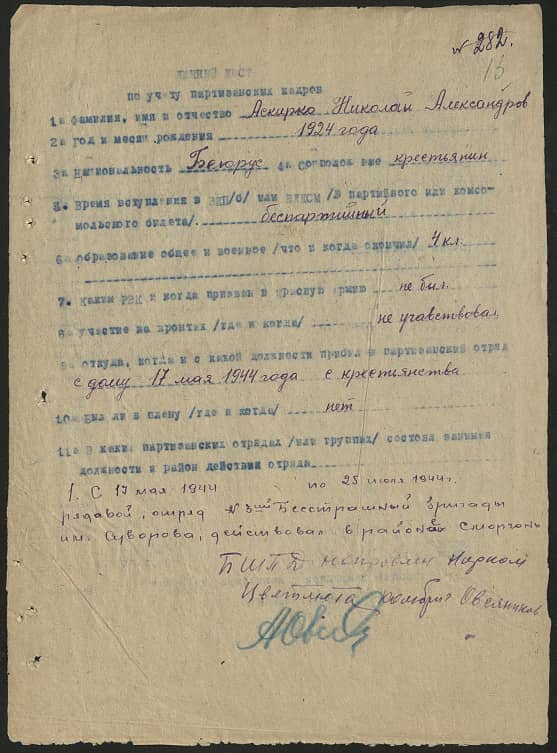 № 282.
16
ЛИЧНЫЙ ЛИСТ
по учету партизанских кадров
1. Фамилия, имя и отчество Аскирко Николай Александров
2. Год и месяц рождения 1924 года
3. Национальность Белорус 4. Соцполож ние крестьянин
5. Время вступления в ВКП/б/ или ВЛКСМ /№ партийного или комсо-
мольского билета/. беспартийный
6. Образование общее и военное /что и когда окончил/ 4 кл.
7. Каким РВК и когда призван в Красную армию не был.
8. Участие на фронтах /где и когда/ не учавствовал
9. Откуда, когда и с какой должности прибыл в партизанский отряд
с дому 17 мая 1944 года с крестьянства
10. Был ли в плену /где и когда/ нет
11. В каких партизанских отрядах /или группах/ состоял занимая
должности и район действия отряда
1. С 17 мая 1944 по 25 июля 1944 г.
рядавой, отряд №3ий Бесстрашный бригады
им. Суворова, действовал в районе Сморгонь
БШПД направлен Нарком
Цветмета комбриг Овсянников